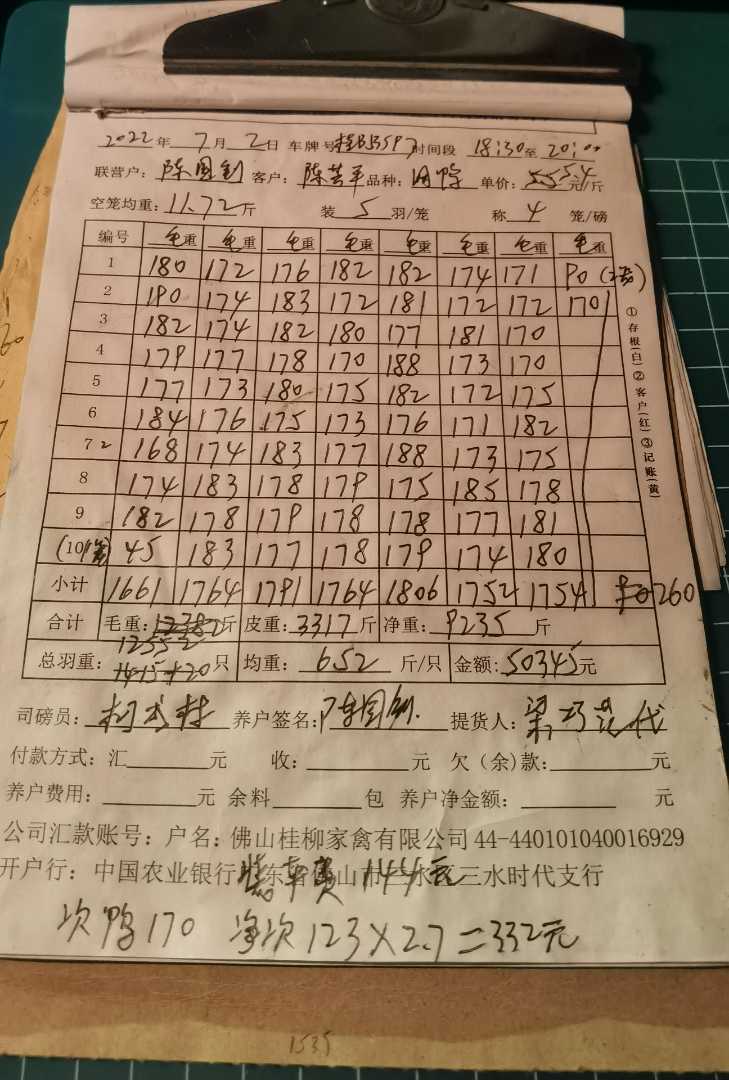 2022年 7月 2日 车牌号 时间段 18:30至 20:00
联营户: 陈国钊 客户: 陈芸平 品种: 单价: 5.54元/斤
空笼均重: 11.72斤 装 5 羽/笼 称 4 笼/磅
编号 毛重 毛重 毛重 毛重 毛重 毛重 毛重 毛重
1 180 172 176 182 182 174 171 90
2 190 174 183 172 181 172 172 170
3 182 174 182 180 177 181 170
4 179 177 178 170 188 173 170
5 177 173 180 175 182 172 175
6 184 176 175 173 176 171 182
7 2 168 174 183 177 188 173 175
8 174 183 178 179 175 185 178
9 182 178 179 178 178 177 181
(10 45 183 177 178 179 174 180
小计 1661 1764 1791 1764 1806 1752 1754 260
合计 毛重: 斤 皮重: 3317斤 净重: 9235 斤
12552
总羽重: 只 均重: 652 斤/只 金额: 50345元
司磅员: 养户签名: 陈国钊 提货人:
付款方式: 汇 元 收: 元 欠(余)款: 元
养户费用: 元 余料 包 养户净金额: 元
公司汇款账号: 户名: 佛山桂柳家禽有限公司 44-440101040016929
开户行: 中国农业银行 东省佛山市三水区三水时代支行
装车费 144元
次鸭170 净次 123×2.7=332元
①存根(白)②客户(红)③记账(黄)
1535